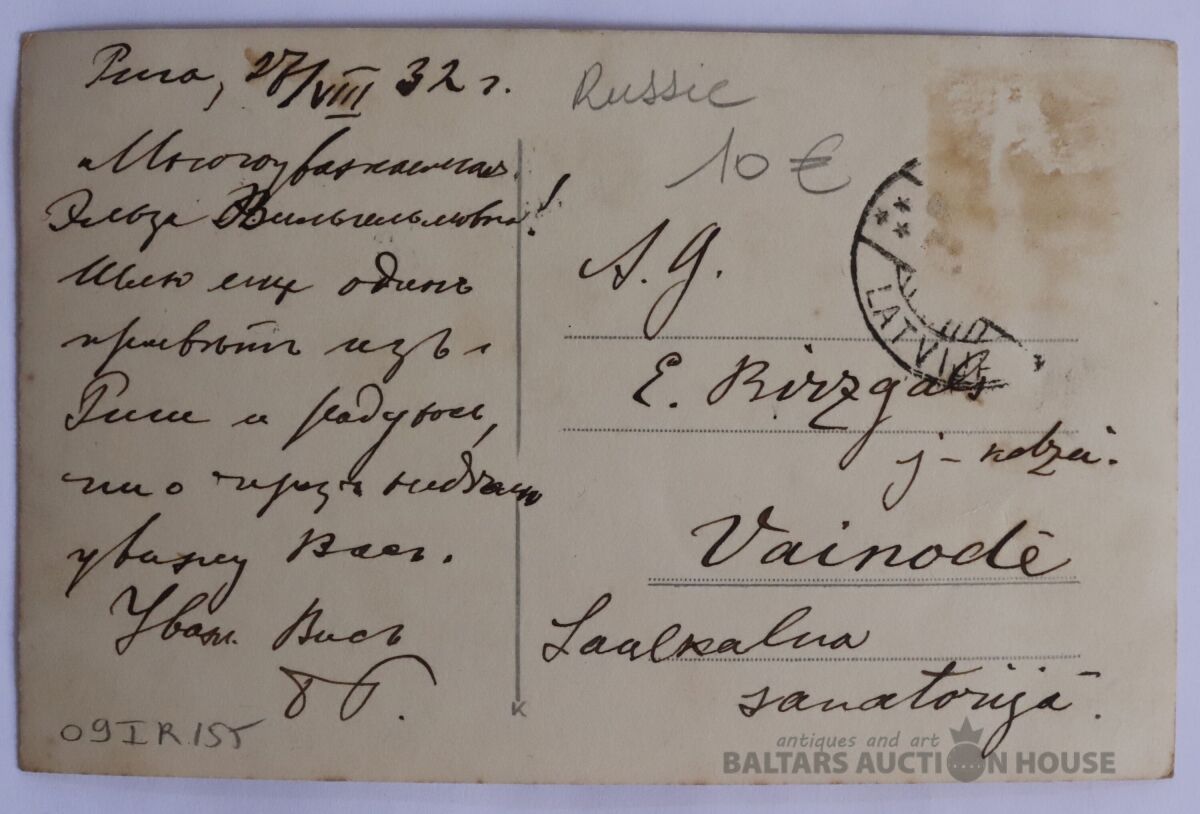 Рига, 27/VIII 32 г.
Многоуважаемая
Эльза Вильгельмовна!
Шлю еще одинъ
приветъ изъ
Риги и радуюсь,
что черезъ неделю
увижу Васъ.
Уваж. Васъ
Russie
10 €
A. G.
E. Birzgals
j-kdzei.
Vaiņodē
Saulkalna
sanatorijā.
LATVIJA
09IR155
K
antiques and art
BALTARS AUCTION HOUSE